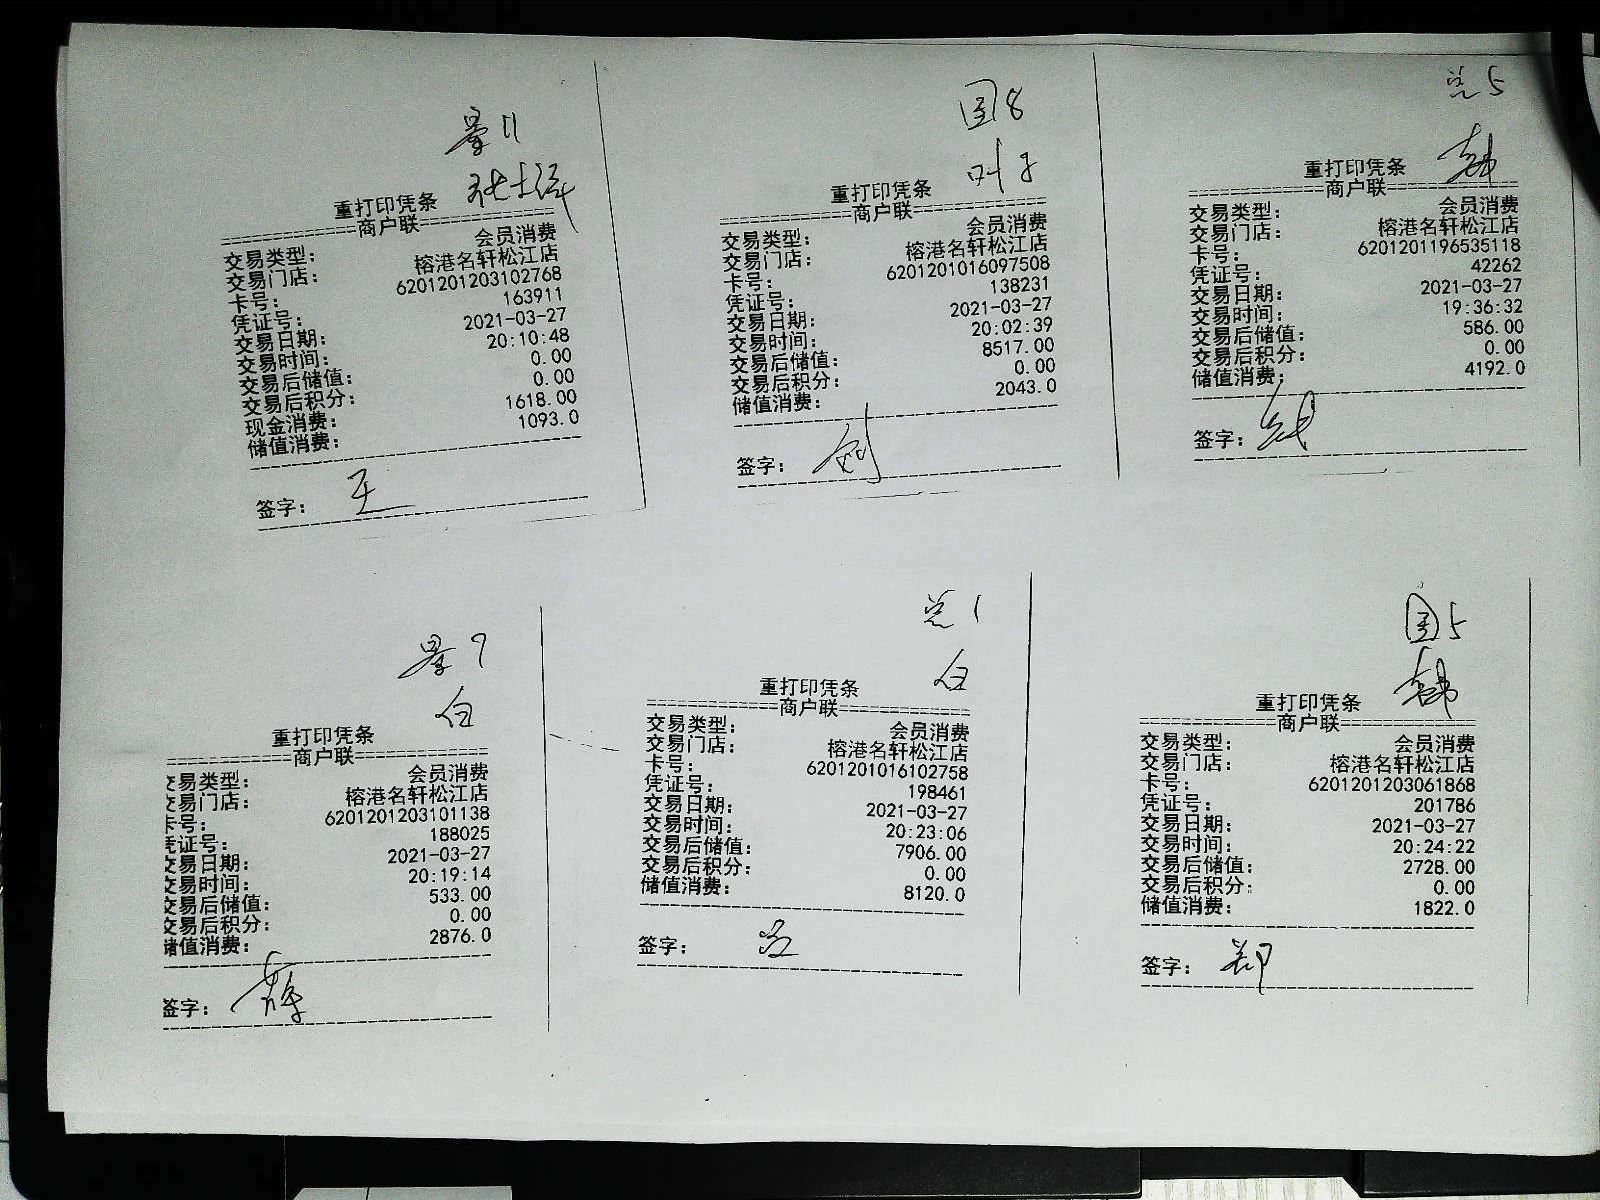 景11
重打印凭条
商户联
交易类型: 会员消费
交易门店: 榕港名轩松江店
卡号: 6201201203102768
凭证号: 163911
交易日期: 2021-03-27
交易时间: 20:10:48
交易后储值: 0.00
交易后积分: 0.00
现金消费: 1618.00
储值消费: 1093.0
签字: 王
国8
叶子
重打印凭条
商户联
交易类型: 会员消费
交易门店: 榕港名轩松江店
卡号: 6201201016097508
凭证号: 138231
交易日期: 2021-03-27
交易时间: 20:02:39
交易后储值: 8517.00
交易后积分: 0.00
储值消费: 2043.0
签字:
5
韩
重打印凭条
商户联
交易类型: 会员消费
交易门店: 榕港名轩松江店
卡号: 6201201196535118
凭证号: 42262
交易日期: 2021-03-27
交易时间: 19:36:32
交易后储值: 586.00
交易后积分: 0.00
储值消费: 4192.0
签字:
景7
白
重打印凭条
商户联
交易类型: 会员消费
交易门店: 榕港名轩松江店
卡号: 6201201203101138
凭证号: 188025
交易日期: 2021-03-27
交易时间: 20:19:14
交易后储值: 533.00
交易后积分: 0.00
储值消费: 2876.0
签字:
1
白
重打印凭条
商户联
交易类型: 会员消费
交易门店: 榕港名轩松江店
卡号: 6201201016102758
凭证号: 198461
交易日期: 2021-03-27
交易时间: 20:23:06
交易后储值: 7906.00
交易后积分: 0.00
储值消费: 8120.0
签字:
国5
韩
重打印凭条
商户联
交易类型: 会员消费
交易门店: 榕港名轩松江店
卡号: 6201201203061868
凭证号: 201786
交易日期: 2021-03-27
交易时间: 20:24:22
交易后储值: 2728.00
交易后积分: 0.00
储值消费: 1822.0
签字: 郑